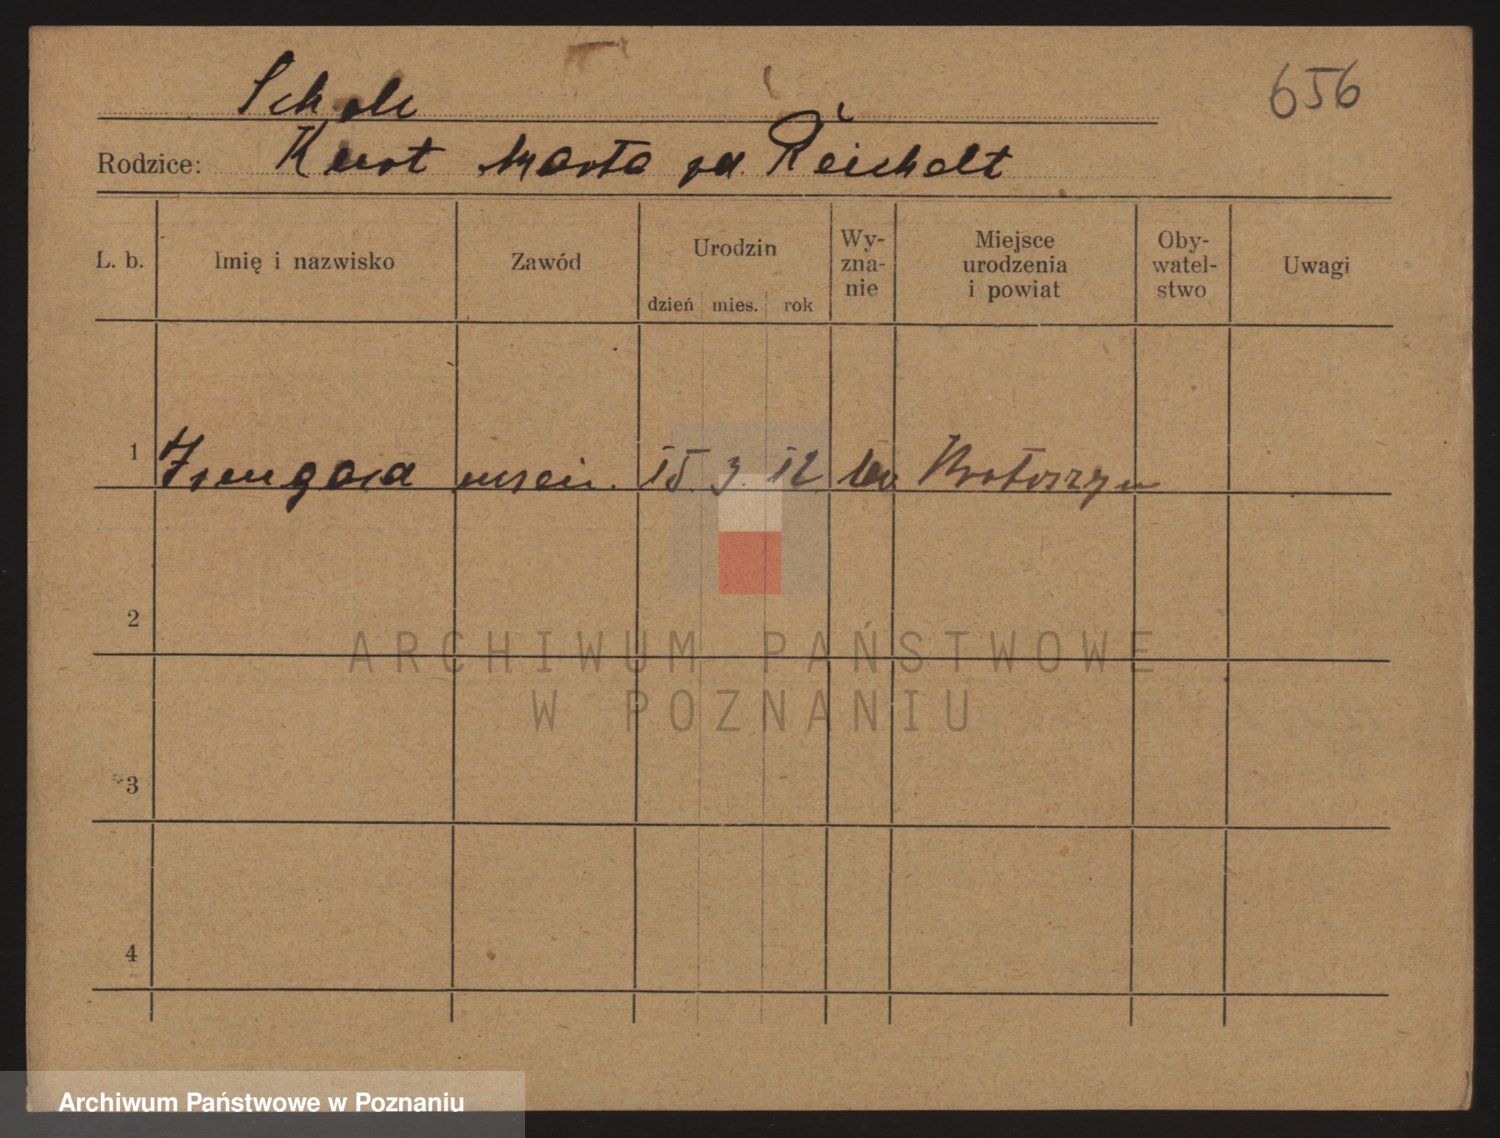 656
Rodzice: Kurt Marta zd. Reichelt
L. b. Imię i nazwisko Zawód Urodzin dzień mies. rok Wy-zna-nie Miejsce urodzenia i powiat Oby-watel-stwo Uwagi
1 15. 3. 12. ev Krotoszyn
2
ARCHIWUM PAŃSTWOWE
W POZNANIU
3
4
Archiwum Państwowe w Poznaniu